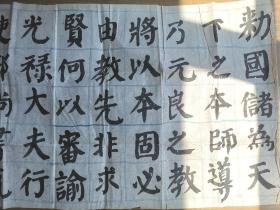 勅國儲為天
下之本師導
乃元良之教
將以本固必
由教先非求
賢何以審諭
光禄大夫行